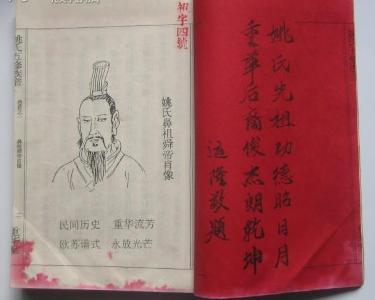 姚氏先祖功德昭日月
重华后裔俊杰朗乾坤
远隆敬题
初字四號
姚氏鼻祖舜帝肖像
民间历史 重华流芳
欧苏谱式 永放光芒